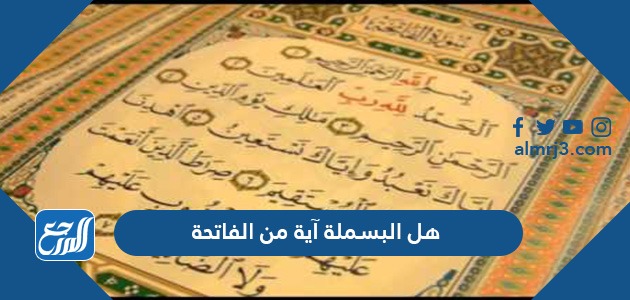 سورة الفاتحة
بسم الله الرحمن الرحيم ١
الحمد لله رب العلمين ٢
الرحمن الرحيم ٣ ملك يوم الدين ٤
إياك نعبد وإياك نستعين ٥ اهدنا
المستقيم ٦ صرط الذين أنعمت
عليهم
ب عليهم
ولا الضا
almrj3.com
المرجع
هل البسملة آية من الفاتحة